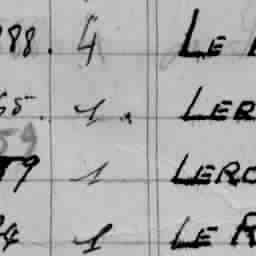 988. 4 LE
65. 1. LER
59
59 1 LERO
24 1 LE R